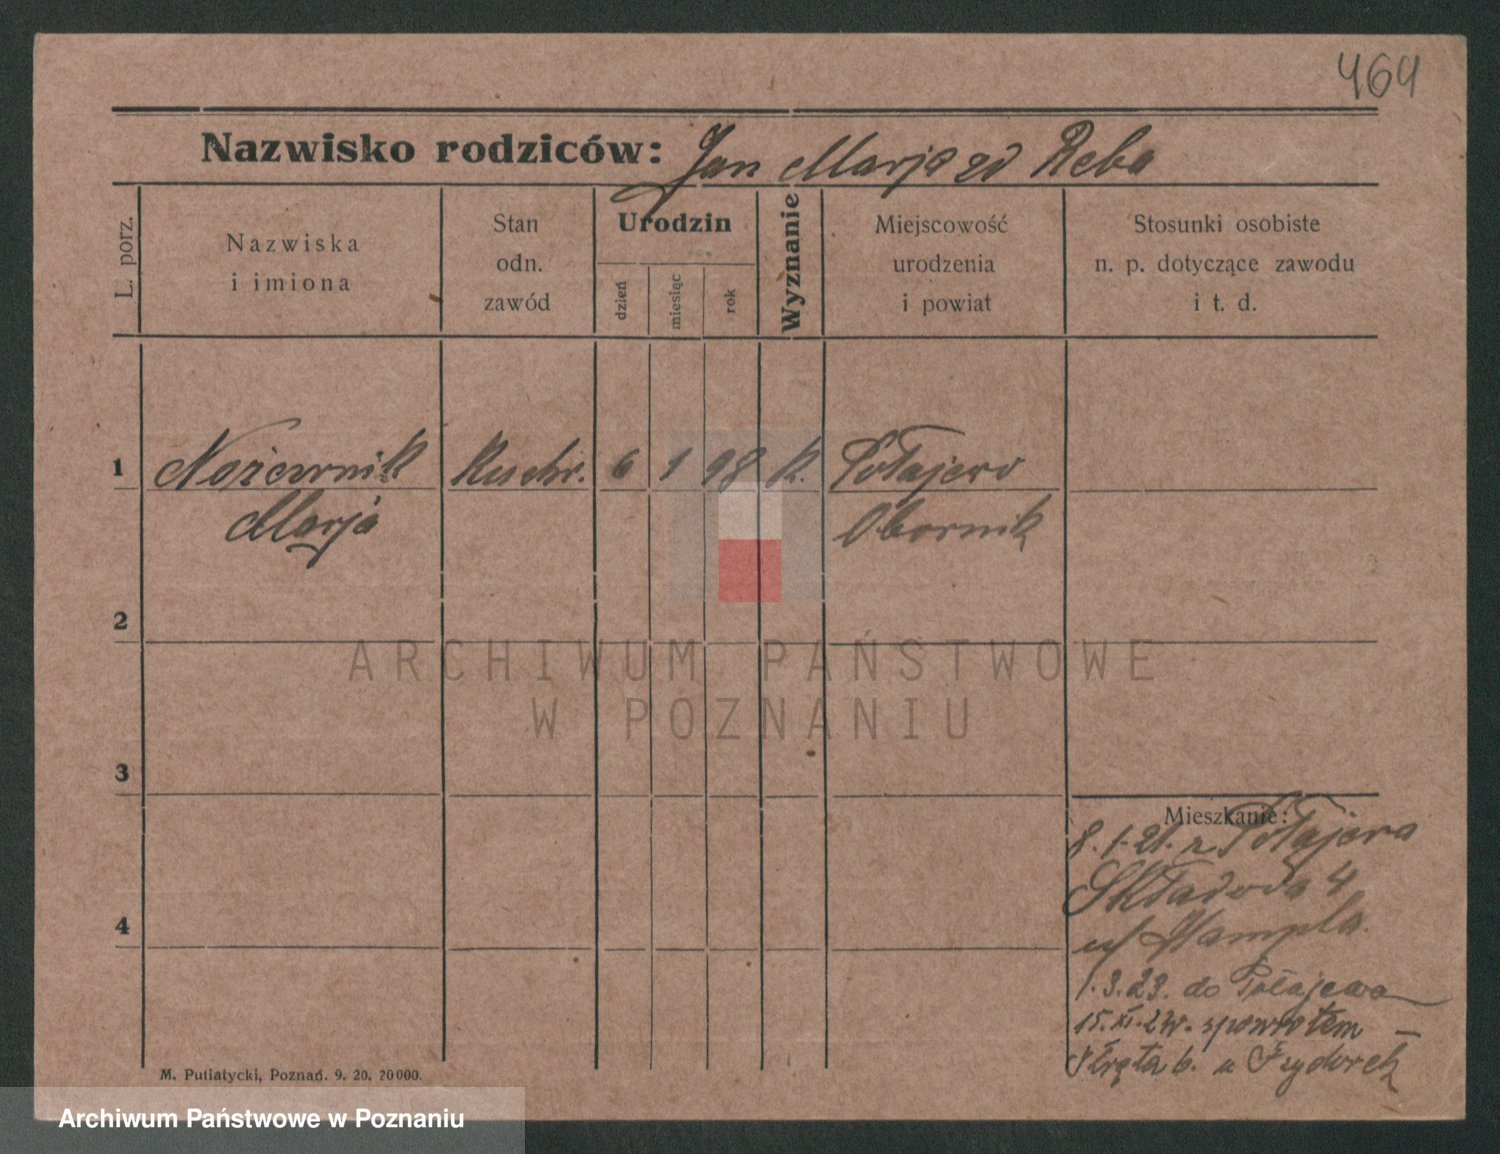 464
Nazwisko rodziców: Jan Marja zd Reba
L. porz.
Nazwiska
i imiona
Stan
odn.
zawód
Urodzin
dzień
miesiąc
rok
Wyznanie
Miejscowość
urodzenia
i powiat
Stosunki osobiste
n. p. dotyczące zawodu
i t. d.
1 Nożownik Kuchr. 6 1 98 k. Połajewo
Marja Obornik
2
ARCHIWUM PAŃSTWOWE
W POZNANIU
3
Mieszkanie:
8.1.21. z Połajewa
Składowa 4
u/ Hampla.
1.3.23. do Połajewa
15.XI.24. spowrotem –
6. u Frydorek
4
M. Putiatycki, Poznań. 9. 20. 20000.
Archiwum Państwowe w Poznaniu